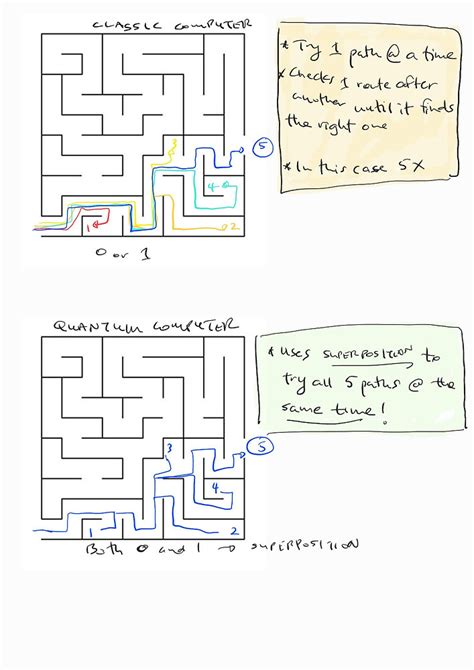 CLASSIC COMPUTER
* Try 1 path @ a time
* Checks 1 route after
another until it finds
the right one
* In this case 5X
3
5
4
1
2
0 or 1
QUANTUM COMPUTER
* uses SUPERPOSITION to
try all 5 paths @ the
same time!
3
5
4
1
2
Both 0 and 1 → SUPERPOSITION